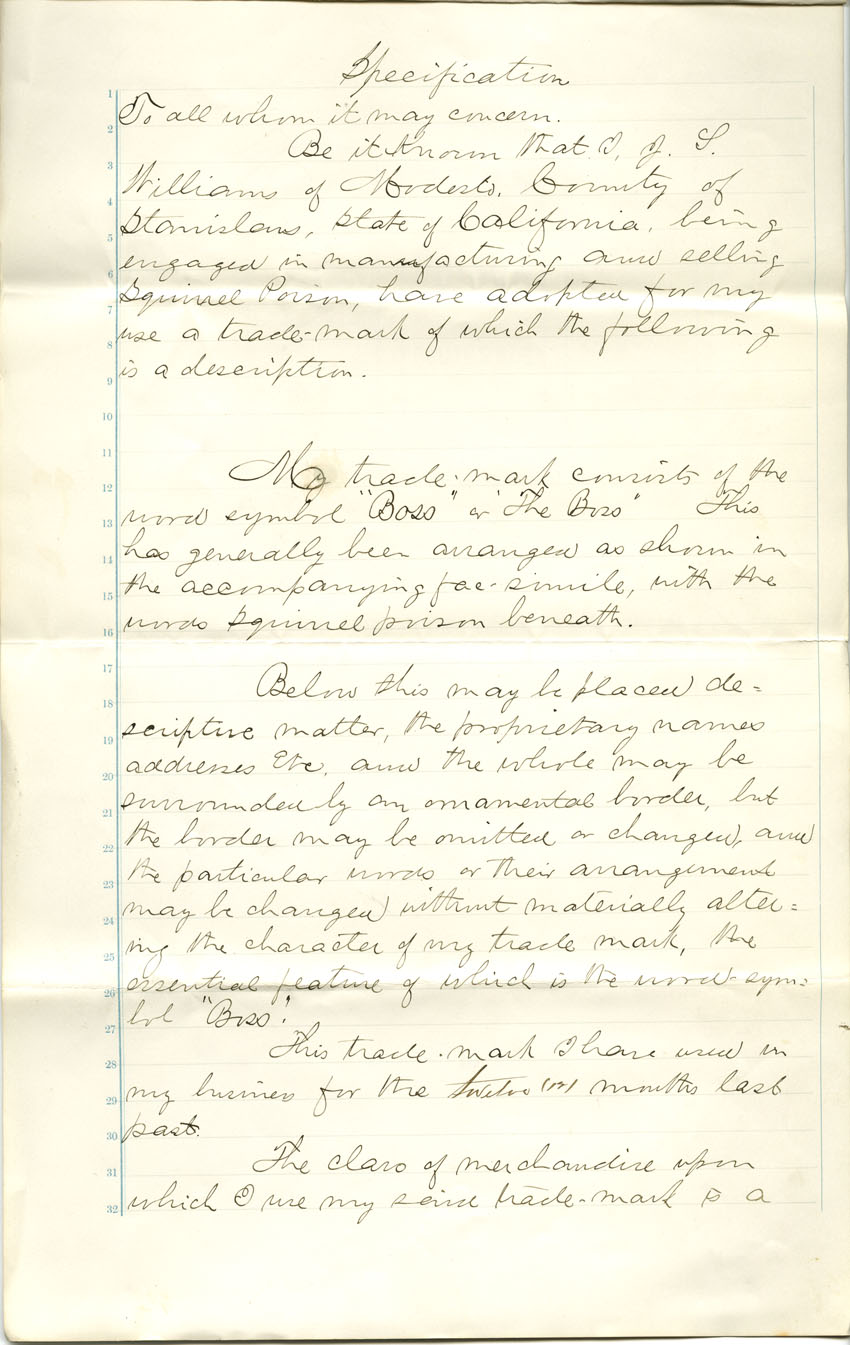 Specification
1
To all whom it may concern.
2
Be it Known that I, J. S.
3
Williams of Modesto, County of
4
Stanislaus, State of California, being
5
engaged in manufacturing and selling
6
Squirrel Poison, have adopted for my
7
use a trade-mark of which the following
8
is a description.
9
10
11
My trade-mark consists of the
12
word symbol "Boss" or "The Boss" This
13
has generally been arranged as shown in
14
the accompanying fac-simile, with the
15
words Squirrel poison beneath.
16
17
Below this may be placed de=
18
scriptive matter, the proprietary names
19
addresses Etc. and the whole may be
20
surrounded by an ornamental border, but
21
the border may be omitted or changed, and
22
the particular words or their arrangement
23
may be changed without materially alter=
24
ing the character of my trade mark, the
25
essential feature of which is the word-sym=
26
bol "Boss".
27
This trade-mark I have used in
28
my business for the twelve (12) months last
29
past.
30
The class of merchandise upon
31
which I use my said trade-mark is a
32